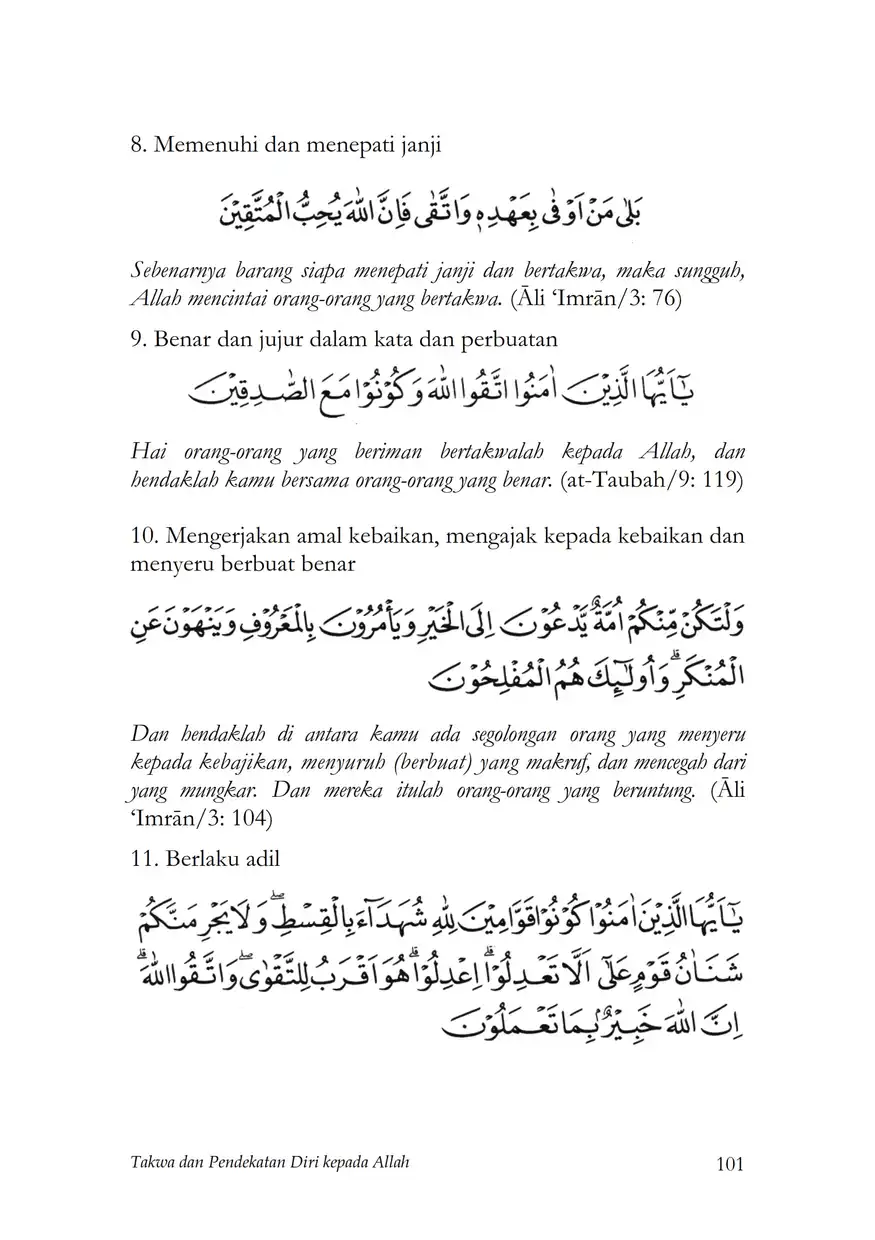 8. Memenuhi dan menepati janji
بَلٰى مَنْ اَوْفٰى بِعَهْدِهٖ وَاتَّقٰى فَاِنَّ اللّٰهَ يُحِبُّ الْمُتَّقِيْنَ
Sebenarnya barang siapa menepati janji dan bertakwa, maka sungguh,
Allah mencintai orang-orang yang bertakwa. (Āli ‘Imrān/3: 76)
9. Benar dan jujur dalam kata dan perbuatan
يٰٓاَيُّهَا الَّذِيْنَ اٰمَنُوا اتَّقُوا اللّٰهَ وَكُوْنُوْا مَعَ الصّٰدِقِيْنَ
Hai orang-orang yang beriman bertakwalah kepada Allah, dan
hendaklah kamu bersama orang-orang yang benar. (at-Taubah/9: 119)
10. Mengerjakan amal kebaikan, mengajak kepada kebaikan dan
menyeru berbuat benar
وَلْتَكُنْ مِّنْكُمْ اُمَّةٌ يَّدْعُوْنَ اِلَى الْخَيْرِ وَيَأْمُرُوْنَ بِالْمَعْرُوْفِ وَيَنْهَوْنَ عَنِ
الْمُنْكَرِۗ وَاُولٰۤىِٕكَ هُمُ الْمُفْلِحُوْنَ
Dan hendaklah di antara kamu ada segolongan orang yang menyeru
kepada kebajikan, menyuruh (berbuat) yang makruf, dan mencegah dari
yang mungkar. Dan mereka itulah orang-orang yang beruntung. (Āli
‘Imrān/3: 104)
11. Berlaku adil
يٰٓاَيُّهَا الَّذِيْنَ اٰمَنُوْا كُوْنُوْا قَوَّامِيْنَ لِلّٰهِ شُهَدَاۤءَ بِالْقِسْطِۖ وَلَا يَجْرِمَنَّكُمْ
شَنَاٰنُ قَوْمٍ عَلٰٓى اَلَّا تَعْدِلُوْاۗ اِعْدِلُوْاۗ هُوَ اَقْرَبُ لِلتَّقْوٰىۖ وَاتَّقُوا اللّٰهَۗ
اِنَّ اللّٰهَ خَبِيْرٌۢ بِمَا تَعْمَلُوْنَ
Takwa dan Pendekatan Diri kepada Allah 101